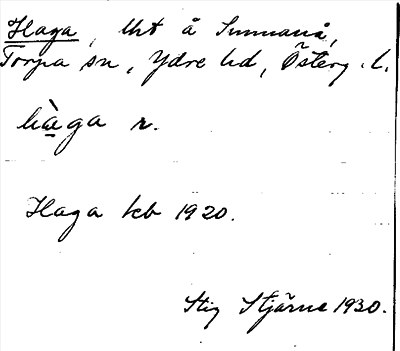 Haga, lht å Sunnanå,
Torpa sn, Ydre hd, Österg. l.
hàga n.
Haga kb 1920.
Stig Stjärne 1930.